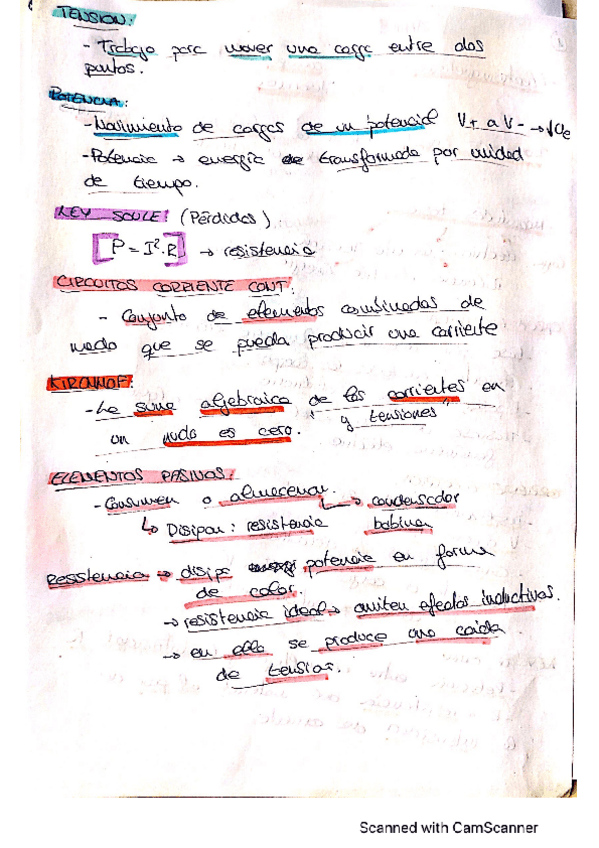 TENSION:
- Trabajo para mover una carga entre dos
puntos.
POTENCIA:
- Movimiento de cargas de un potencial V+ a V- →
- Potencia → energía de transformada por unidad
de tiempo.
LEY JOULE: (Pérdidas)
[P = I².R] → resistencia
CIRCUITOS CORRIENTE CONT:
- Conjunto de elementos combinados de
modo que se pueda producir una corriente
KIRCHHOF:
- La suma algebraica de las corrientes en
un nudo es cero. "y tensiones"
ELEMENTOS PASIVOS:
- Consumen o almacenan. → condensador
↳ Disipan: resistencia bobina
Resistencia → disipa potencia en forma
de calor.
→ resistencia ideal → omiten efectos inductivos.
→ en ella se produce una caída
de tensión.
Scanned with CamScanner